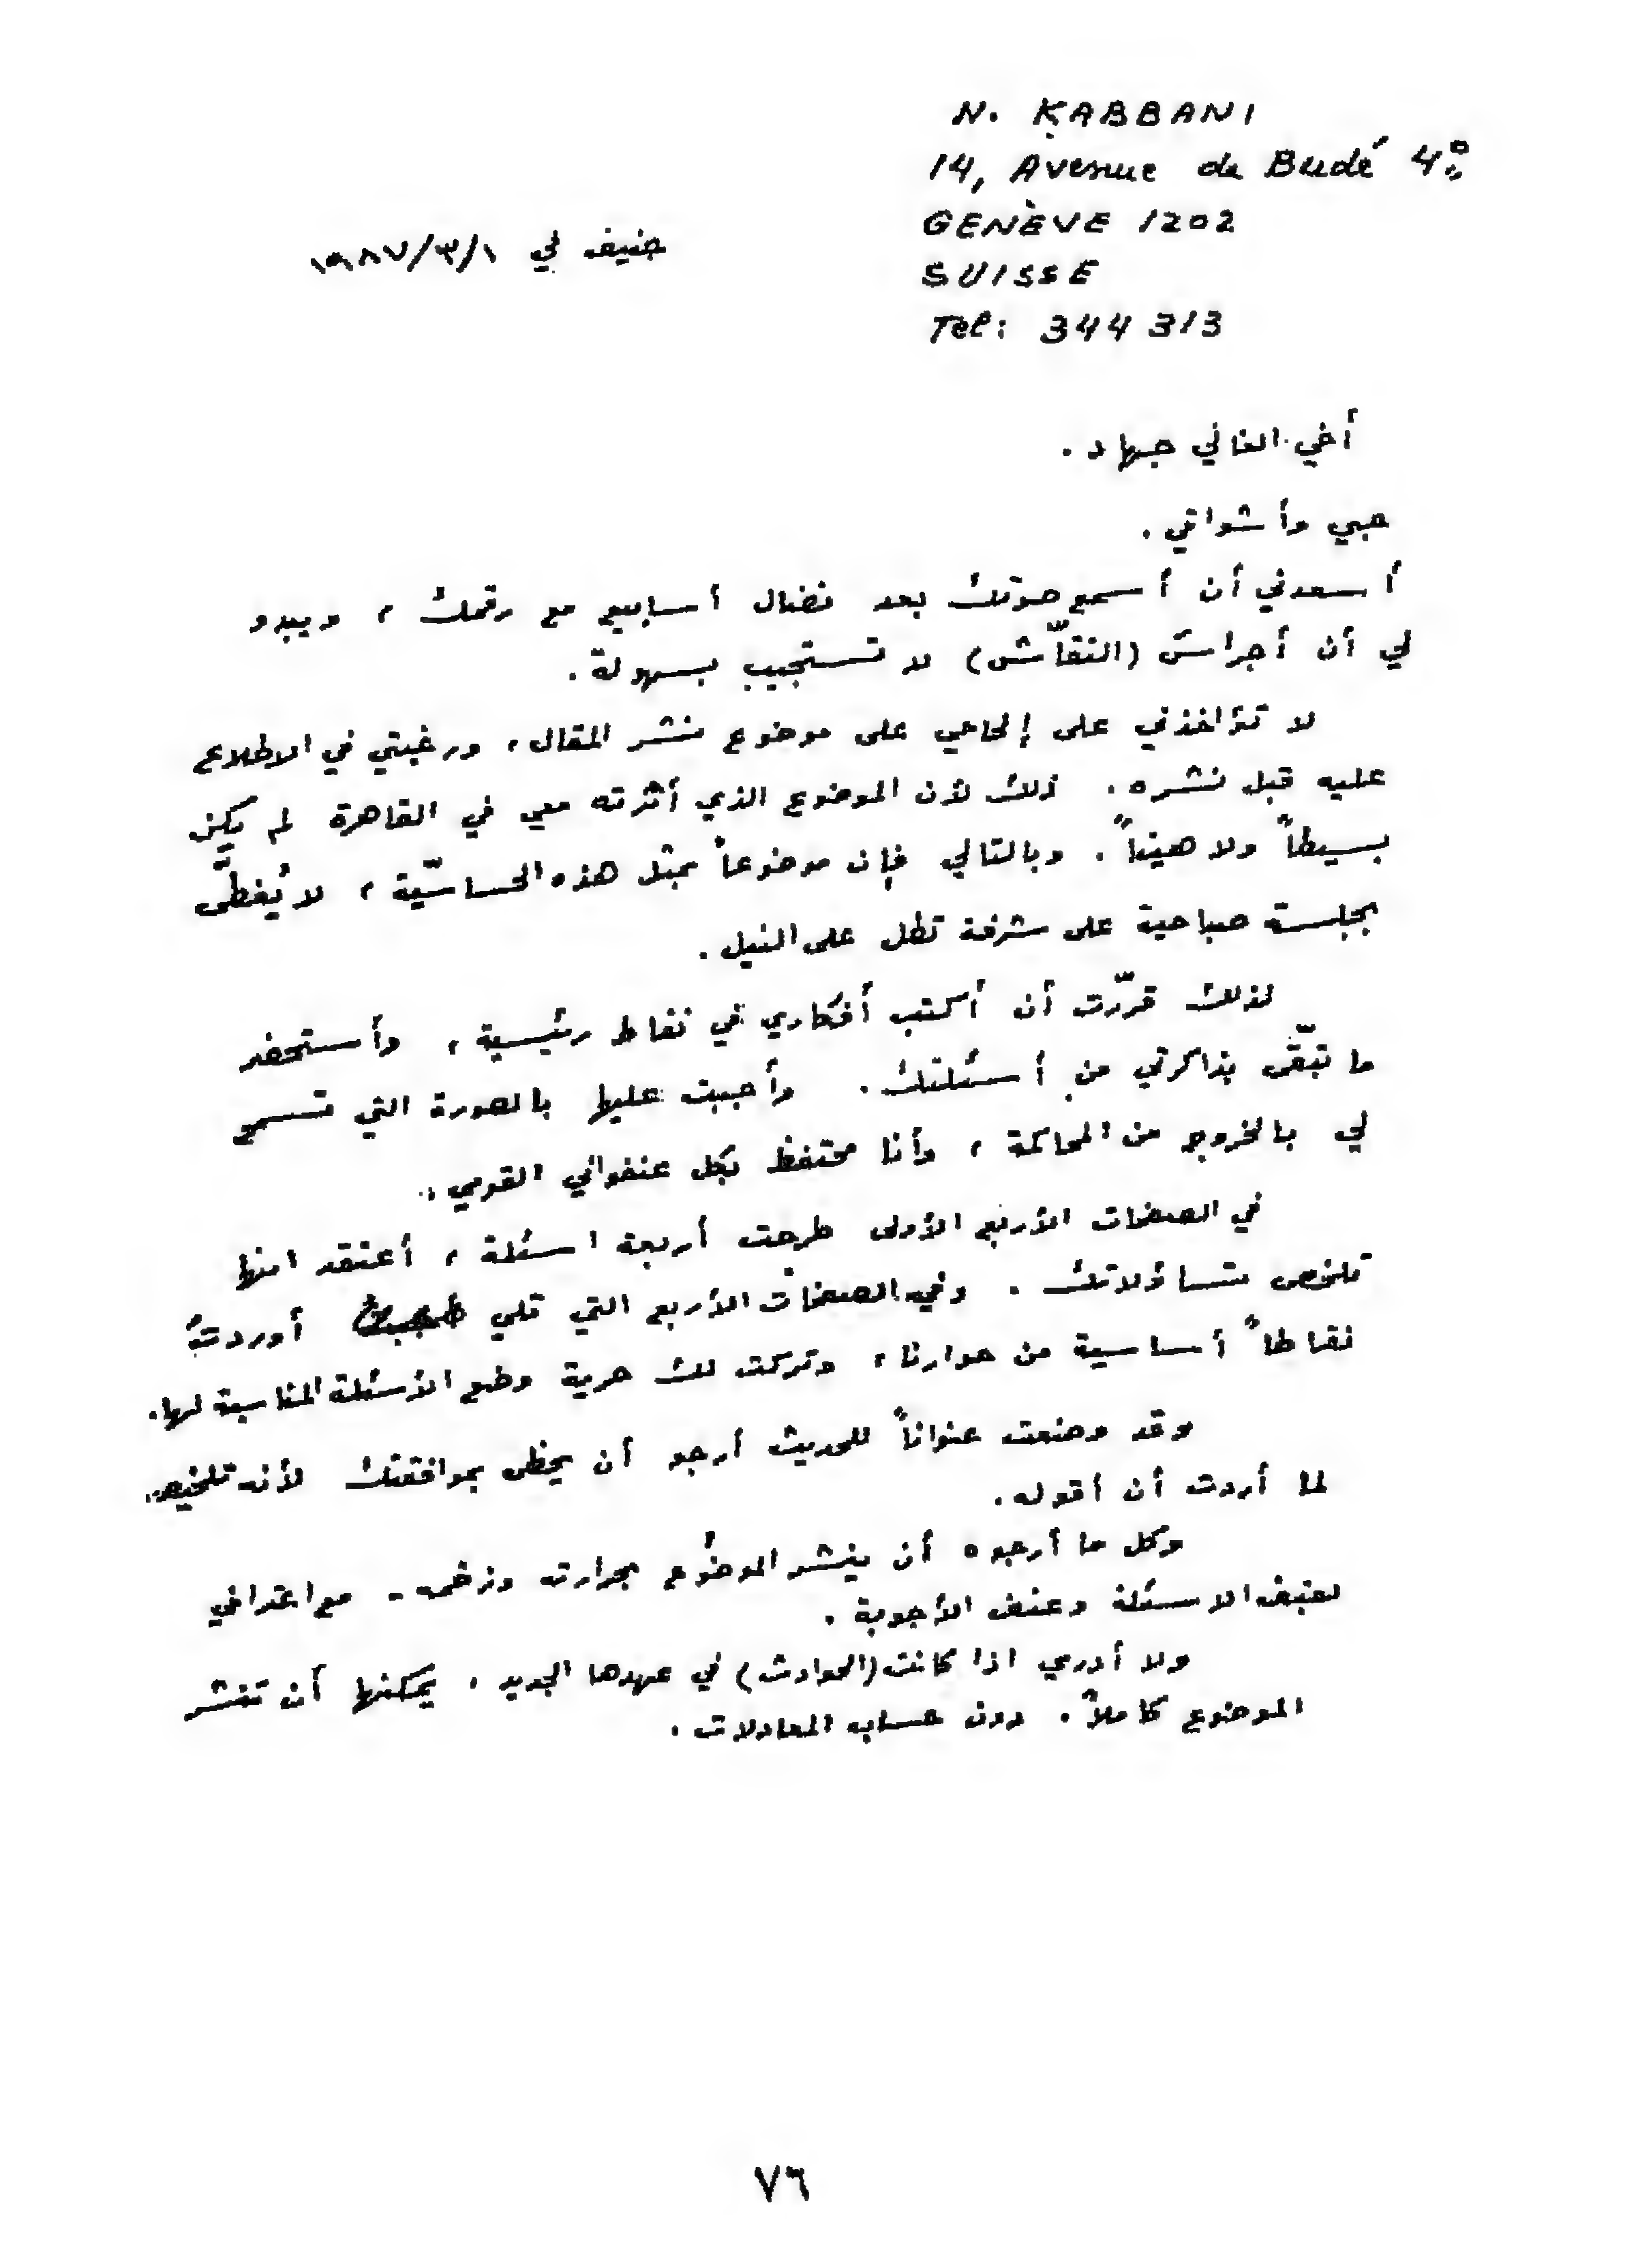 N. KABBANI
14, Avenue de Budé 4º
GENÈVE 1202
SUISSE
Tel: 344 313
جنيف في ١٩٨٧/٣/١
أخي الغالي جهاد.
حبي وأشواقي.
أسعدني أن أسمع صوتك بعد نضال أسابيع مع رقمك، ويبدو
لي أن أجراس (النقّاش) لا تستجيب بسهولة.
لا تؤاخذني على إلحاحي على موضوع نشر المقال، ورغبتي في الاطلاع
عليه قبل نشره. ذلك لأن الموضوع الذي أثرته معي في القاهرة لم يكن
بسيطاً ولا هيناً. وبالتالي فإن موضوعاً بمثل هذه الحساسيّة، لا يُغطّى
بجلسة صباحية على شرفة تطل على النيل.
لذلك قررّت أن أكتب أفكاري في نقاط رئيسية، وأستحضر
ما تبقّى بذاكرتي من أسئلتك. وأجبت عليها بالصورة التي تسمح
لي بالخروج من المحاكمة، وأنا محتفظ بكل عنفواني القومي.
في الصفحات الأربع الأولى طرحت أربعة اسئلة، أعتقد انها
تلخص تساؤلاتك. وفي الصفحات الأربع التي تلي أوردتُ
نقاطاً أساسية من حوارنا، وتركت لك حرية وضع الأسئلة المناسبة لها.
وقد وضعت عنواناً للحديث أرجو أن يحظى بموافقتك لأنه تلخيص
لما أردت أن أقوله.
وكل ما أرجوه أن ينشر الموضوع بحرارته وزخمه - مع اعترافي
بعنف الاسئلة وعنف الأجوبة.
ولا أدري اذا كانت (الحوادث) في عهدها الجديد، يمكنها أن تنشر
الموضوع كاملاً. دون حساب المعادلات.
٧٦